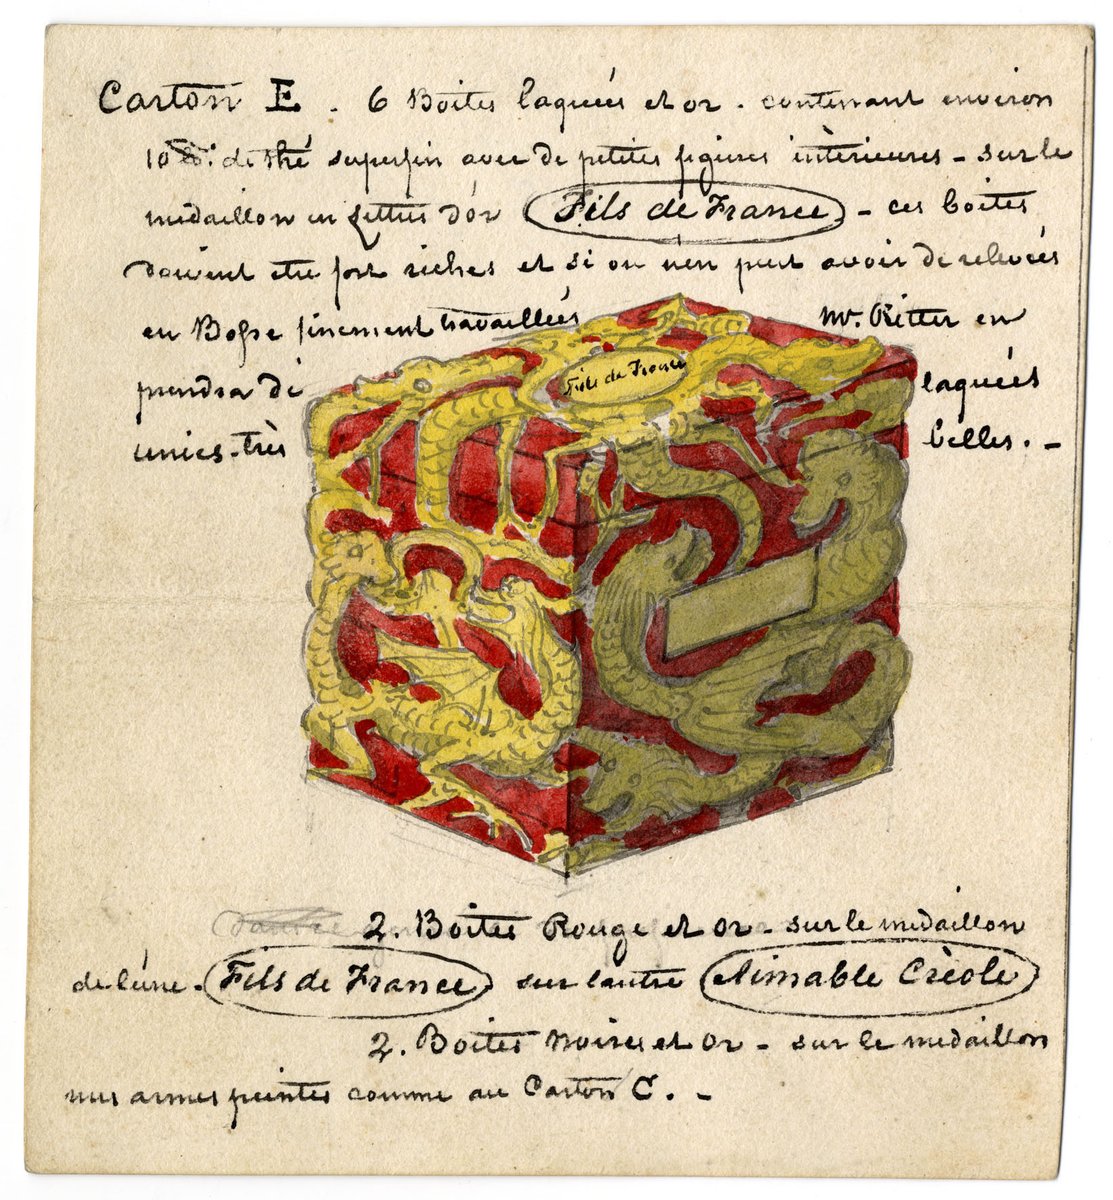 Carton E. 6 Boites laquées et or. contenant environ
10 de thé superfin avec de petites figures intèrieures - sur le
medaillon en Lettres d'or Fils de France - ces boites
doivent etre fort riches et si on n'en peut avoir de relevées
en Bosse finement travaillées Mr. Ritter en
prendra de laquées
unies. très belles. -
Fils de France
2. Boites Rouge et or - sur le medaillon
de l'une. Fils de France sur l'autre Aimable Crèole
2. Boites noires et or - sur le medaillon
mes armes peintes comme au Carton C. -